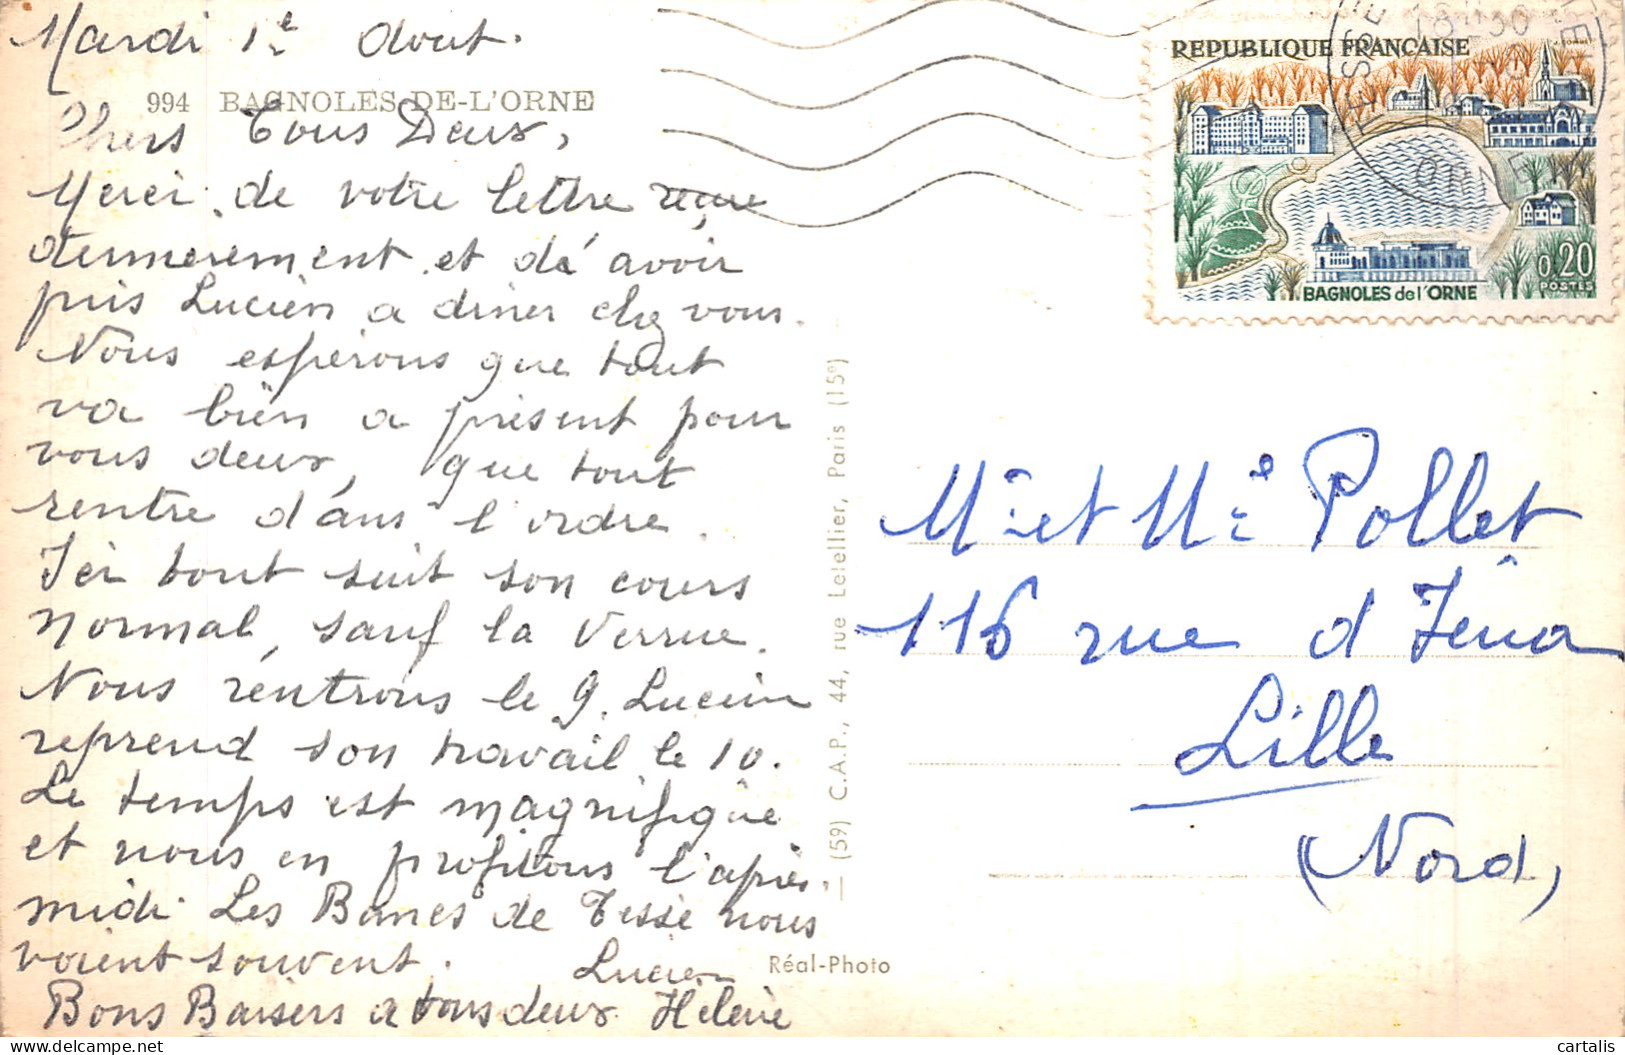 Mardi 1e Aout.
994 BAGNOLES-DE-L'ORNE
Chers Tous Deux,
Merci de votre lettre reçue
dernierement et d'à avoir
pris Lucien a diner chez vous.
Nous espérons que tout
va bien a présent pour
vous deux, que tout
rentre dans l'ordre.
Ici tout suit son cours
normal, sauf la Verrue.
Nous rentrons le 9. Lucien
reprend son travail le 10.
Le temps est magnifique
et nous en profitons l'après
midi. Les Bancs de Tessé nous
voient souvent.
Lucien
Bons Baisers a tous deux Hélène
(59) C.A.P., 44, rue Letellier, Paris (15e)
Réal-Photo
REPUBLIQUE FRANÇAISE
0,20
POSTES
BAGNOLES de l'ORNE
TESSE
18-30
ORNE
Mr et Me Pollet
116 rue d Iéna
Lille
(Nord)
cartalis